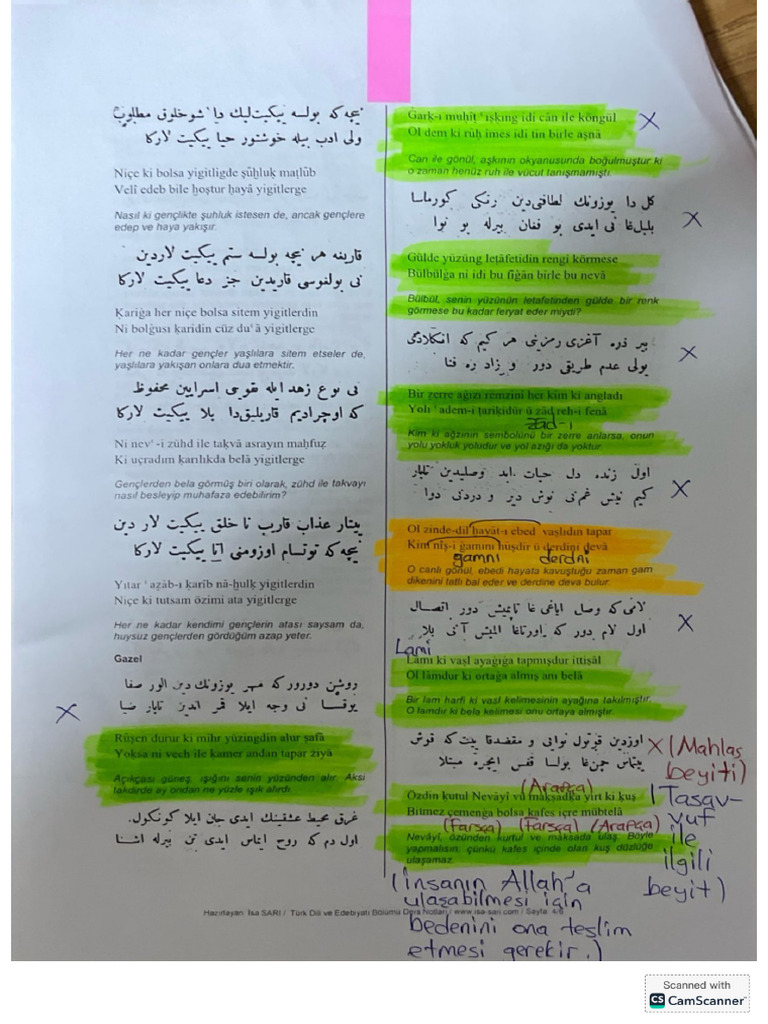 نیچه که بولسه ییکیت لیك دا شوخلوق مطلوب
ولی ادب بیله خوشتور حیا ییکیت لارکا
Niçe ki bolsa yigitligde şūḫluḳ maṭlūb
Velī edeb bile ḫoştur ḥayā yigitlerge
Nasıl ki gençlikte şuhluk istesen de, ancak gençlere
edep ve haya yakışır.
قاریغه هر نیچه بولسه ستم ییکیت لاردین
نی بولغوسی قاریدین جز دعا ییکیت لارکا
Ḳariġa her niçe bolsa sitem yigitlerdin
Ni bolġusı ḳaridin cüz du'ā yigitlerge
Her ne kadar gençler yaşlılara sitem etseler de,
yaşlılara yakışan onlara dua etmektir.
نی نوع زهد ایله تقوی اسرایین محفوظ
که اوچرادیم قاریلیق دا بلا ییکیت لارکا
Ni nev'-i zühd ile taḳvā asrayın maḥfuẓ
Ki uçradım ḳarılıkda belā yigitlerge
Gençlerden bela görmüş biri olarak, zühd ile takvayı
nasıl besleyip muhafaza edebilirim?
ییتار عذاب قاریب نا خلق ییکیت لار دین
نیچه که توتسام اوزومنی اتا ییکیت لارکا
Yıtar 'aẕāb-ı ḳarīb nā-ḫulḳ yigitlerdin
Niçe ki tutsam özimi ata yigitlerge
Her ne kadar kendimi gençlerin atası saysam da,
huysuz gençlerden gördüğüm azap yeter.
Gazel
روشین دورور که مهر یوزونك دین الور صفا
یوقسا نی وجه ایلا قمر اندین تاپار ضیا
Rūşen durur ki mihr yüzingdin alur ṣafā
Yoksa ni vech ile ḳamer andan tapar żiyā
Açıkçası güneş, ışığını senin yüzünden alır. Aksi
takdirde ay ondan ne yüzle ışık alırdı.
غرق محیط عشقینك ایدی جان ایلا کونکول
اول دم که روح ایماس ایدی تن بیرله اشنا
Ġarḳ-ı muḥiṭ 'ışḳıng idi cān ile köngül
Ol dem ki rūḥ imes idi tin birle aşnā
Can ile gönül, aşkının okyanusunda boğulmuştur ki
o zaman henüz ruh ile vücut tanışmamıştı.
X
کل دا یوزونك لطافتی دین رنکی کورماسا
بلبل غا نی ایدی بو فغان بیرله بو نوا
X
Gülde yüzüng leṭāfetidin rengi körmese
Bülbülġa ni idi bu fiġān birle bu nevā
Bülbül, senin yüzünün letafetinden gülde bir renk
görmese bu kadar feryat eder miydi?
بیر ذره آغزی رمزینی هر کیم که انکلادی
یولی عدم طریقی دور و زاد ره فنا
X
Bir zerre aġızı remzini her kim ki angladı
Yolı 'adem-i ṭarīḳidür ü zād reh-i fenā
zād-ı
Kim ki ağzının sembolünü bir zerre anlarsa, onun
yolu yokluk yoludur ve yol azığı da yoktur.
اول زنده دل حیات ابد وصلیدین تاپار
کیم نیش غم نی نوش دیر و دردنی دوا
X
Ol zinde-dil ḥayāt-ı ebed vaṣlıdın tapar
Kim nīş-i ġamını hūşdir ü derdini devā
gamnı derdni
O canlı gönül, ebedi hayata kavuştuğu zaman gam
dikenini tatlı bal eder ve derdine deva bulur.
لامی که وصل ایاغی غا تاپمیش دور اتصال
اول لام دور که اورتاغا المیش آنی بلا
X
Lami
Lāmī ki vaṣl ayaġıġa tapmışdur ittiṣāl
Ol lāmdur ki ortaġa almış anı belā
Bir lam harfi ki vasl kelimesinin ayağına takılmıştır.
O lamdır ki bela kelimesi onu ortaya almıştır.
اوزدین قرتول نوایی و مقصدقا ییت که قوش
ییتماس چمن غا بولسا قفس ایچره مبتلا
X (Mahlas beyiti)
(Arapça)
Özdin kutul Nevāyī vü maḳsadḳa yirt ki ḳuş
Bilmez çemenga bolsa kafes içre mübtelā
(Farsça) (Farsça) (Arapça)
Nevâyî, özünden kurtul ve maksada ulaş. Böyle
yapmalısın, çünkü kafes içinde olan kuş düzlüğe
ulaşamaz.
(Tasav-
vuf
ile
ilgili
beyit)
(insanın Allah'a
ulaşabilmesi için
bedenini ona teslim
etmesi gerekir.)
Hazırlayan: İsa SARI / Türk Dili ve Edebiyatı Bölümü Ders Notları / www.isa-sari.com / Sayfa 4/6
Scanned with
CS CamScanner